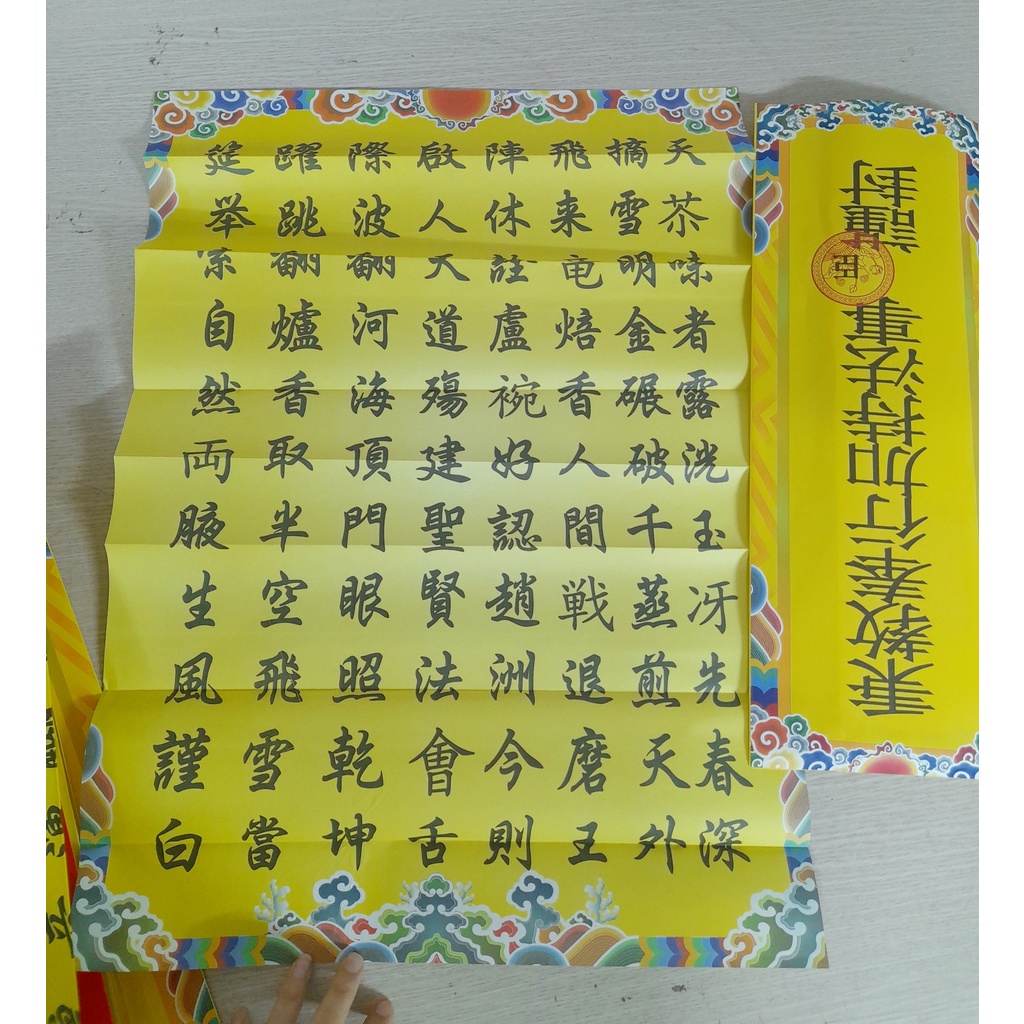 天茶味者露洸玉冴先春深
摘雪明金碾破千蒸煎天外
飛来竜焙香人間戦退磨王
陣休詮盧椀好認趙洲今則
啟人天道殤建聖賢法會舌
際波翻河海頂門眼照乾坤
躍跳翻爐香取半空飛雪當
筵举索自然両腋生風謹白
秉教奉行加持法事 臣 謹封